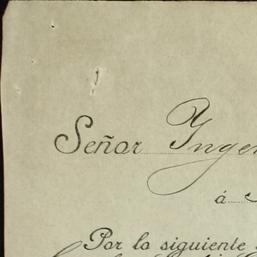 Señor Ynge
á
Por lo siguiente